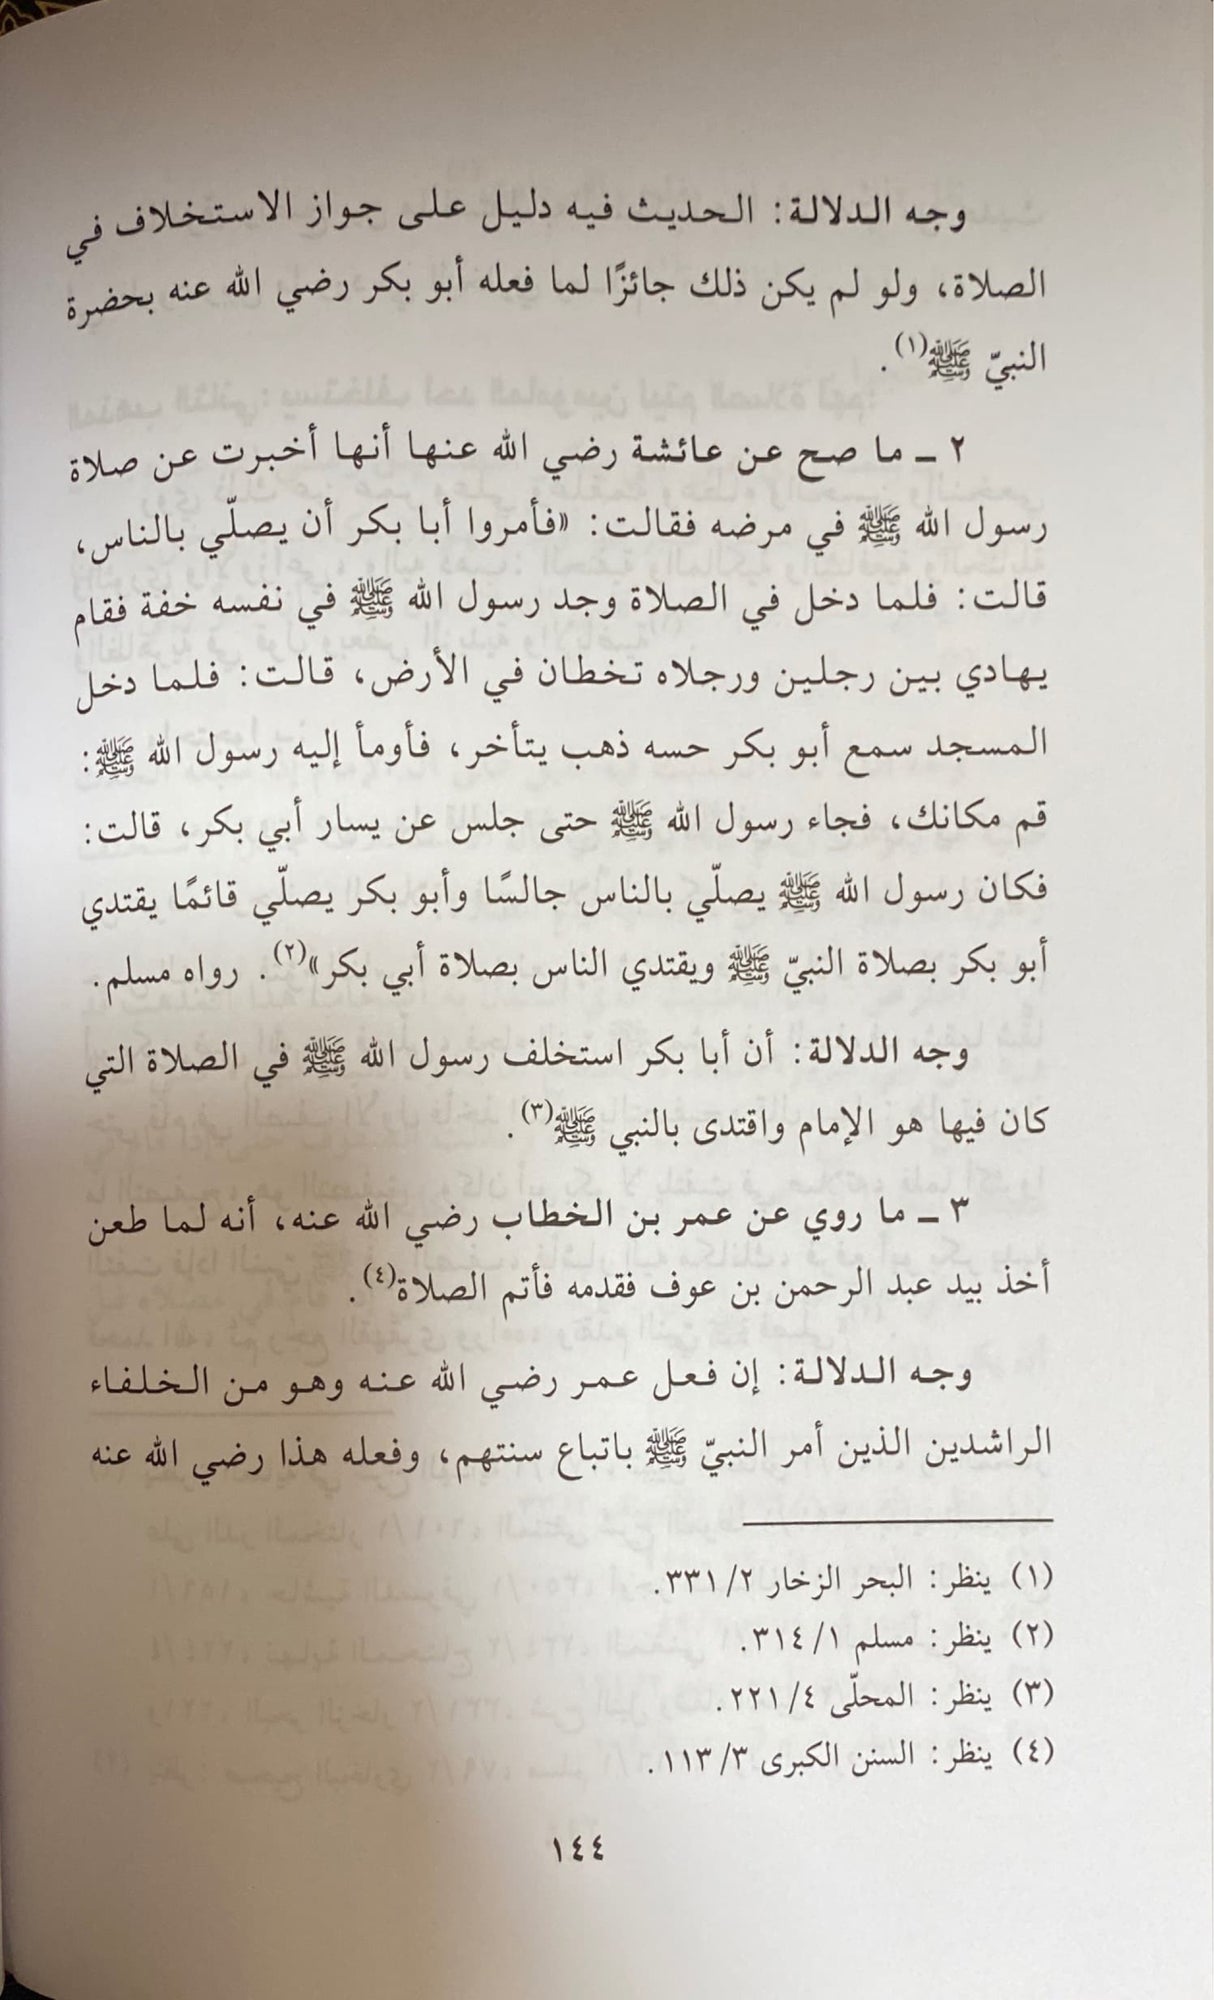 وجه الدلالة: الحديث فيه دليل على جواز الاستخلاف في
الصلاة، ولو لم يكن ذلك جائزًا لما فعله أبو بكر رضي الله عنه بحضرة
النبيّ ﷺ(١).
٢ ـ ما صح عن عائشة رضي الله عنها أنها أخبرت عن صلاة
رسول الله ﷺ في مرضه فقالت: «فأمروا أبا بكر أن يصلّي بالناس،
قالت: فلما دخل في الصلاة وجد رسول الله ﷺ في نفسه خفة فقام
يهادي بين رجلين ورجلاه تخطان في الأرض، قالت: فلما دخل
المسجد سمع أبو بكر حسه ذهب يتأخر، فأومأ إليه رسول الله ﷺ:
قم مكانك، فجاء رسول الله ﷺ حتى جلس عن يسار أبي بكر، قالت:
فكان رسول الله ﷺ يصلّي بالناس جالسًا وأبو بكر يصلّي قائمًا يقتدي
أبو بكر بصلاة النبيّ ﷺ ويقتدي الناس بصلاة أبي بكر»(٢). رواه مسلم.
وجه الدلالة: أن أبا بكر استخلف رسول الله ﷺ في الصلاة التي
كان فيها هو الإمام واقتدى بالنبي ﷺ(٣).
٣ ـ ما روي عن عمر بن الخطاب رضي الله عنه، أنه لما طعن
أخذ بيد عبد الرحمن بن عوف فقدمه فأتم الصلاة(٤).
وجه الدلالة: إن فعل عمر رضي الله عنه وهو من الخلفاء
الراشدين الذين أمر النبيّ ﷺ باتباع سنتهم، وفعله هذا رضي الله عنه
(١) ينظر: البحر الزخار ٢/ ٣٣١.
(٢) ينظر: مسلم ١/ ٣١٤.
(٣) ينظر: المحلّى ٤/ ٢٢١.
(٤) ينظر: السنن الكبرى ٣/ ١١٣.
١٤٤